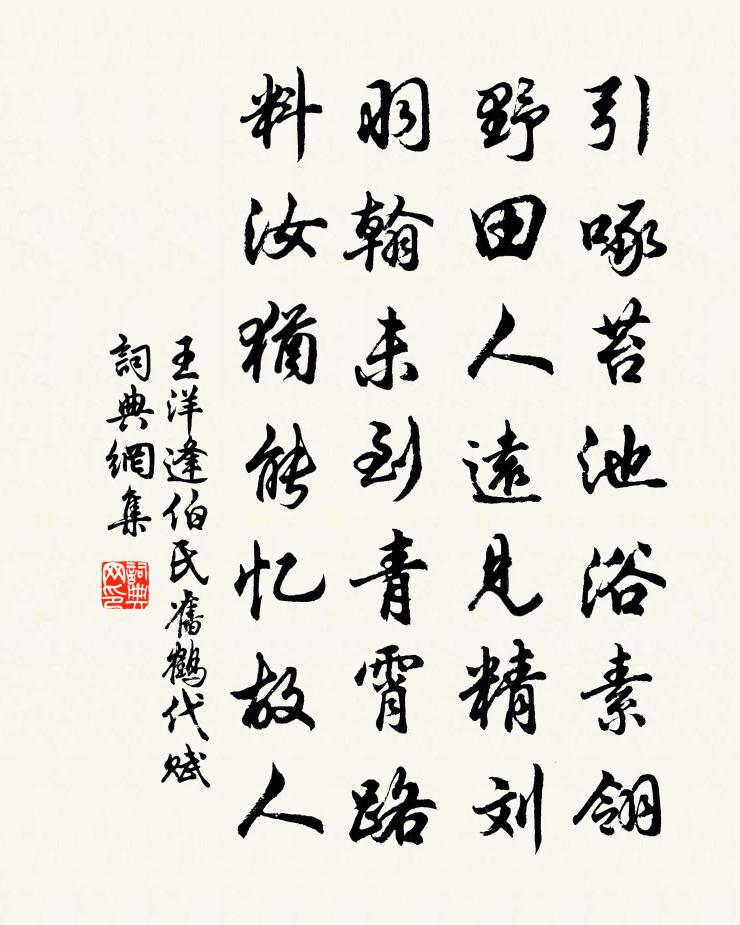 引啄苔池浴素翎
野田人遠見精刘
羽翰未到青霄路
料汝猶能忆故人
王洋逢伯氏舊鶴代賦
詞典網集
詞典网印